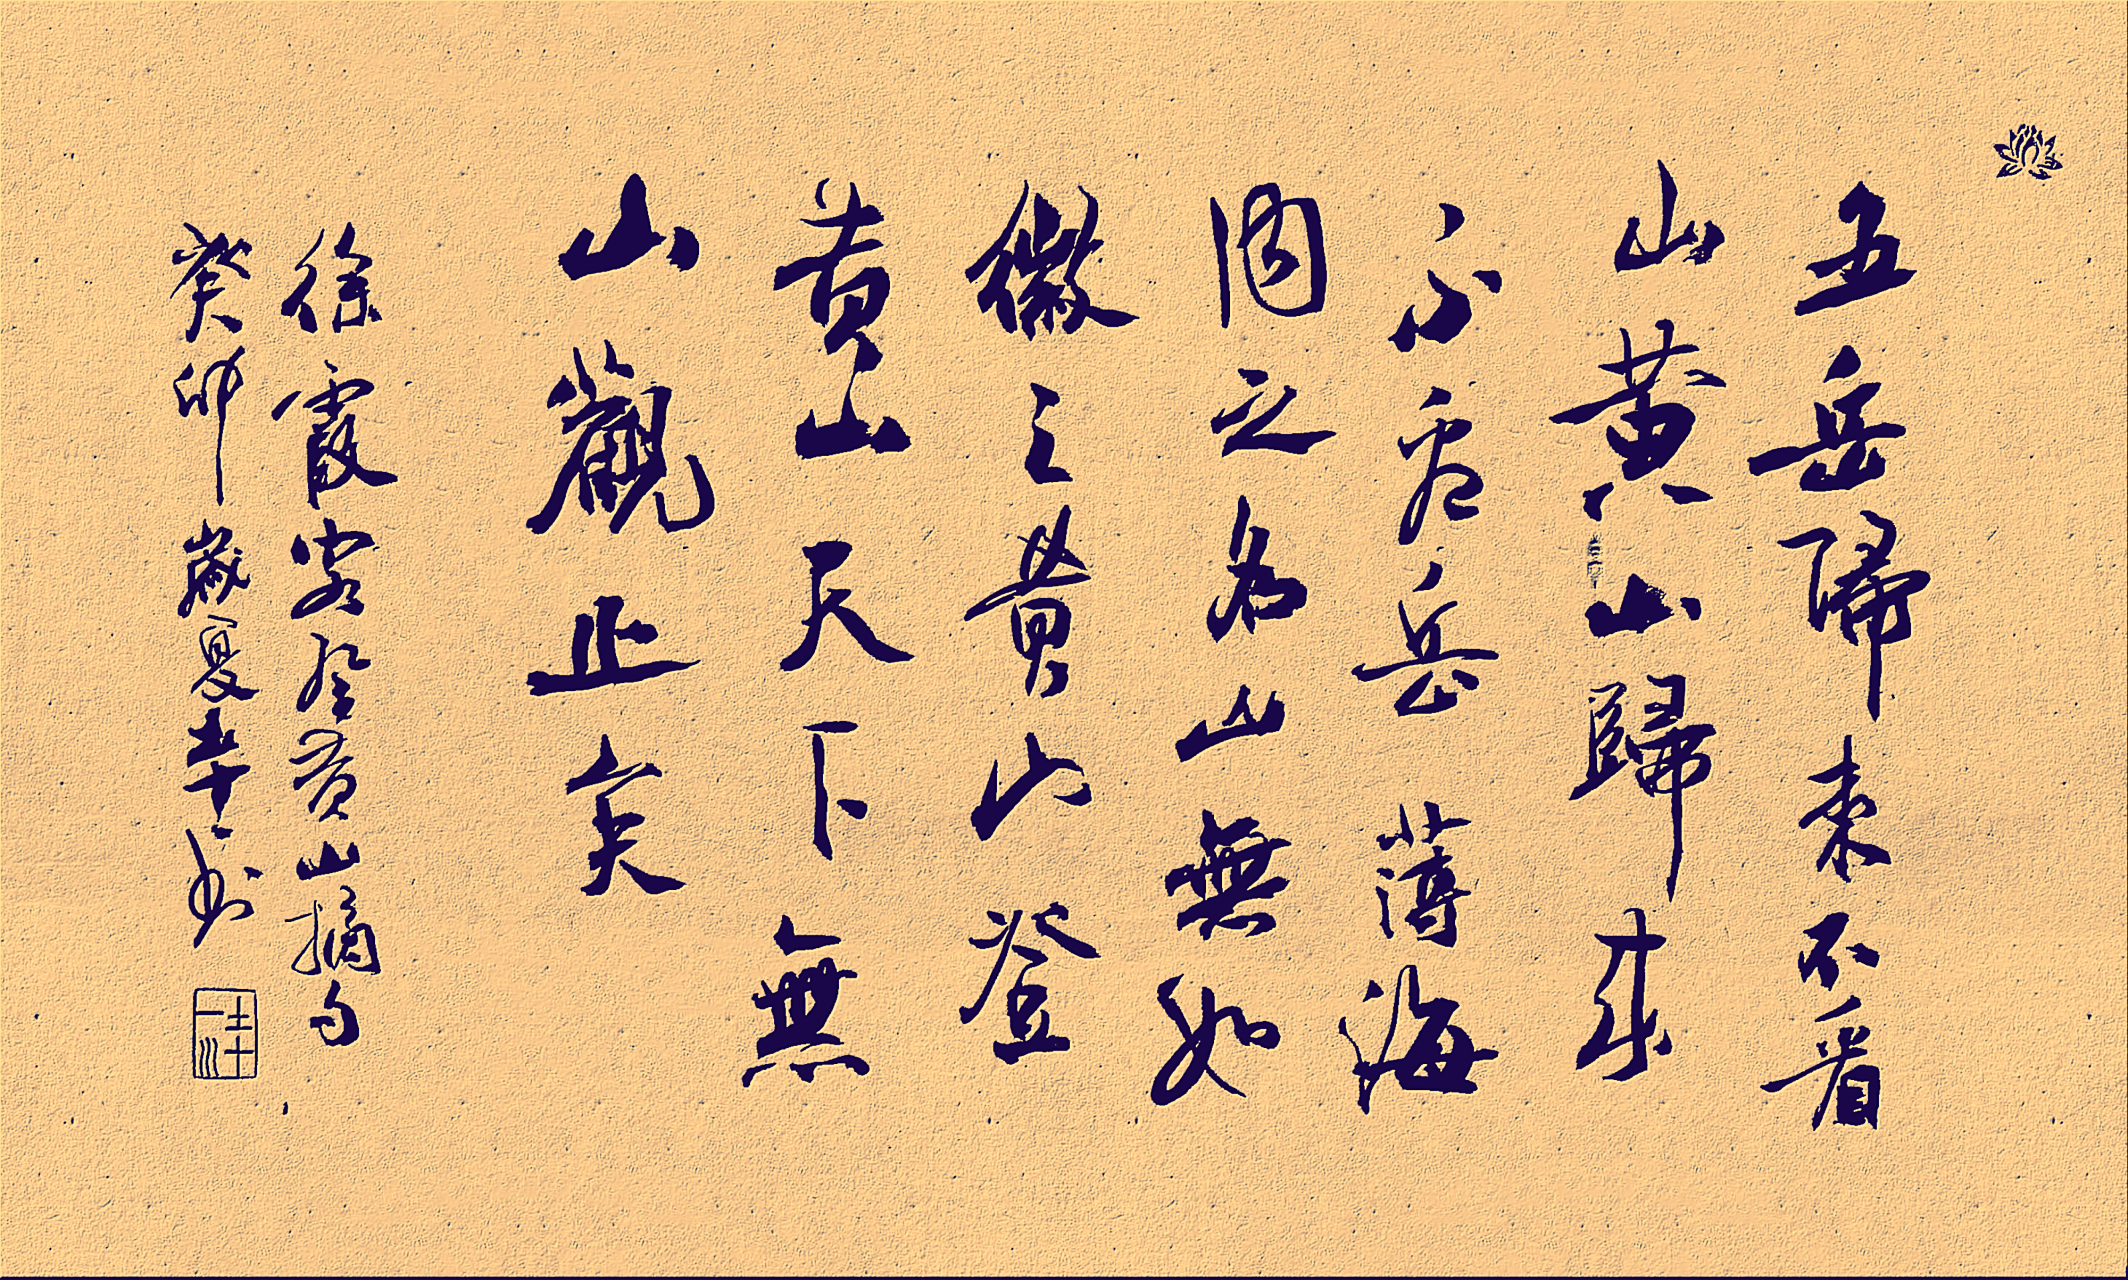 五岳歸來不看
山黄山歸來
不看岳薄海
内之名山無如
徽之黄山登
黄山天下無
山觀止矣
徐霞客登黄山摘句
癸卯歲夏
書